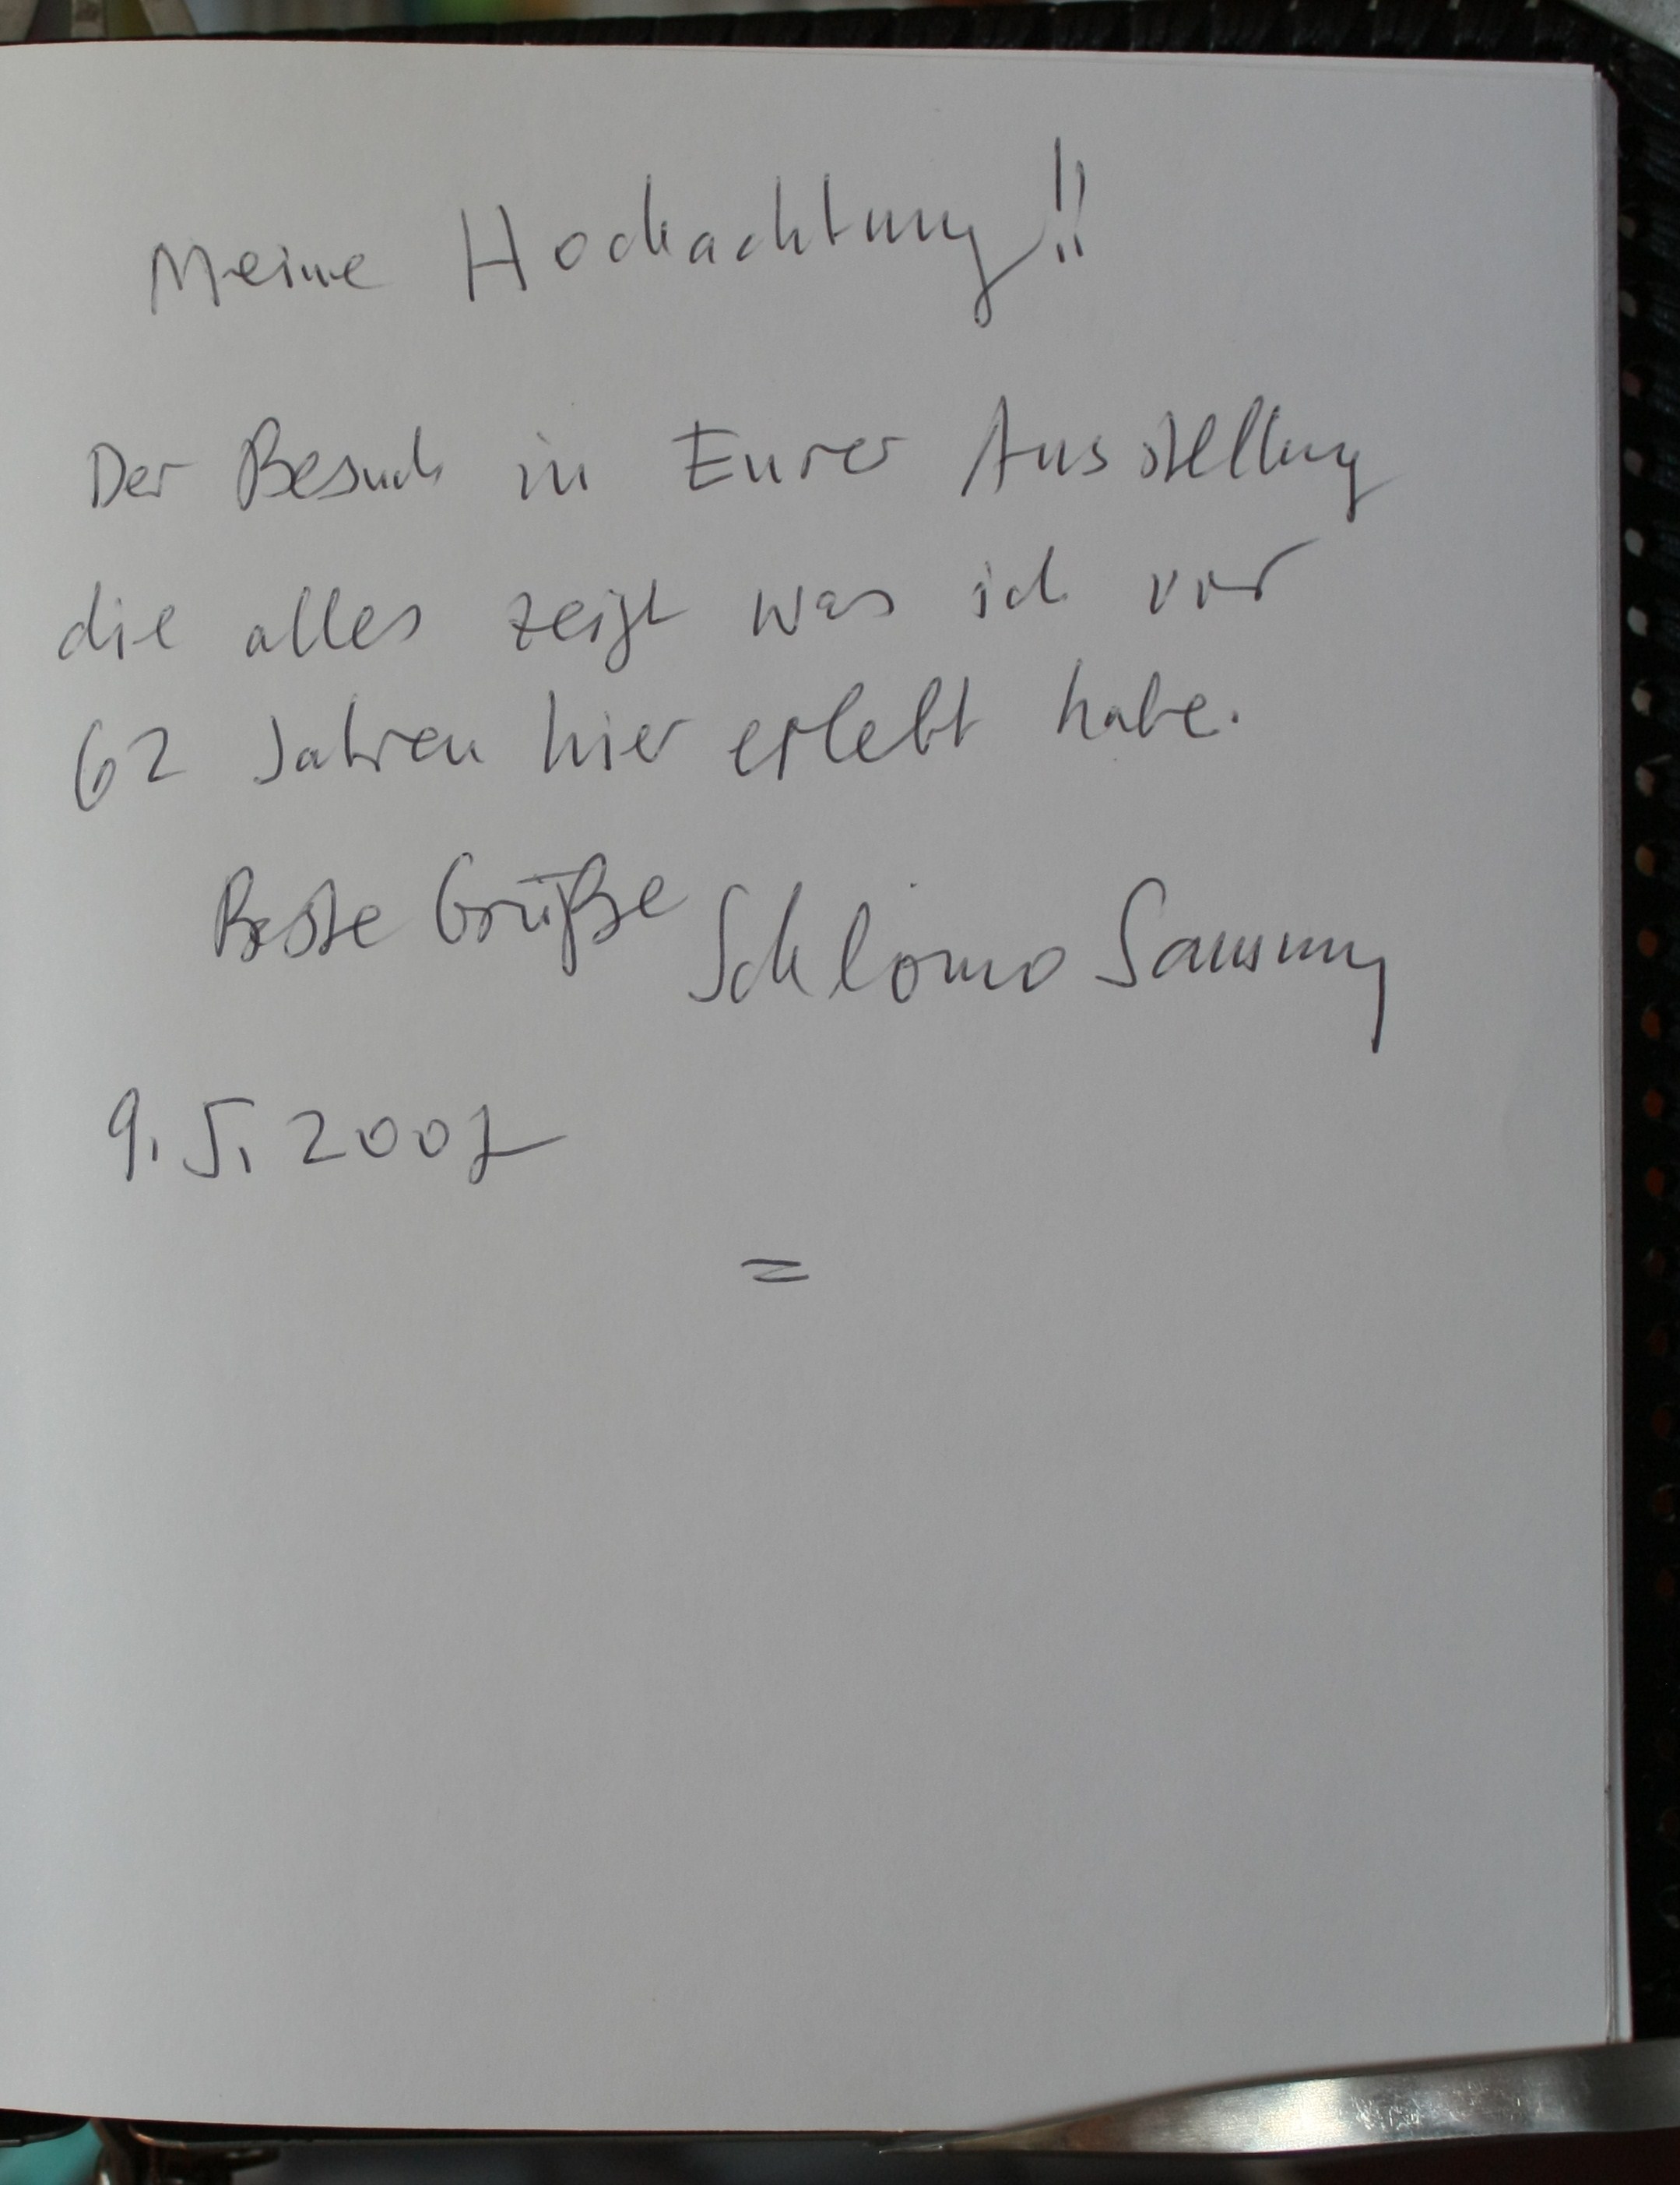 Meine Hochachtung!!
Der Besuch in Eurer Ausstellung
die alles zeigt was ich vor
62 Jahren hier erlebt habe.
Beste Grüße Schlomo Samson
9.5.2007
=